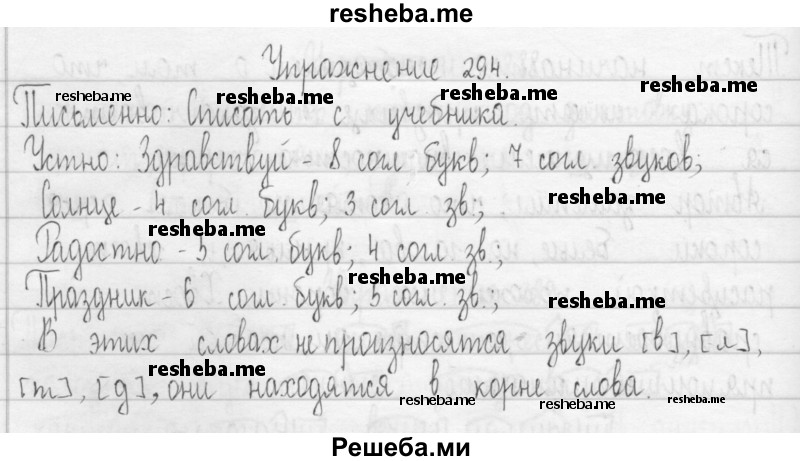 resheba.me
Упражнение 294.
resheba.me resheba.me resheba.me
Письменно: Списать с учебника.
Устно: Здравствуй - 8 согл. букв; 7 согл. звуков;
resheba.me
Солнце - 4 согл. букв; 3 согл. зв.;
resheba.me
Радостно - 5 согл. букв; 4 согл. зв.;
resheba.me
Праздник - 6 согл. букв; 5 согл. зв.;
resheba.me
В этих словах не произносятся звуки [в], [л],
resheba.me
[т], [д], они находятся в корне слова.
resheba.me resheba.me resheba.me
Решеба.ми